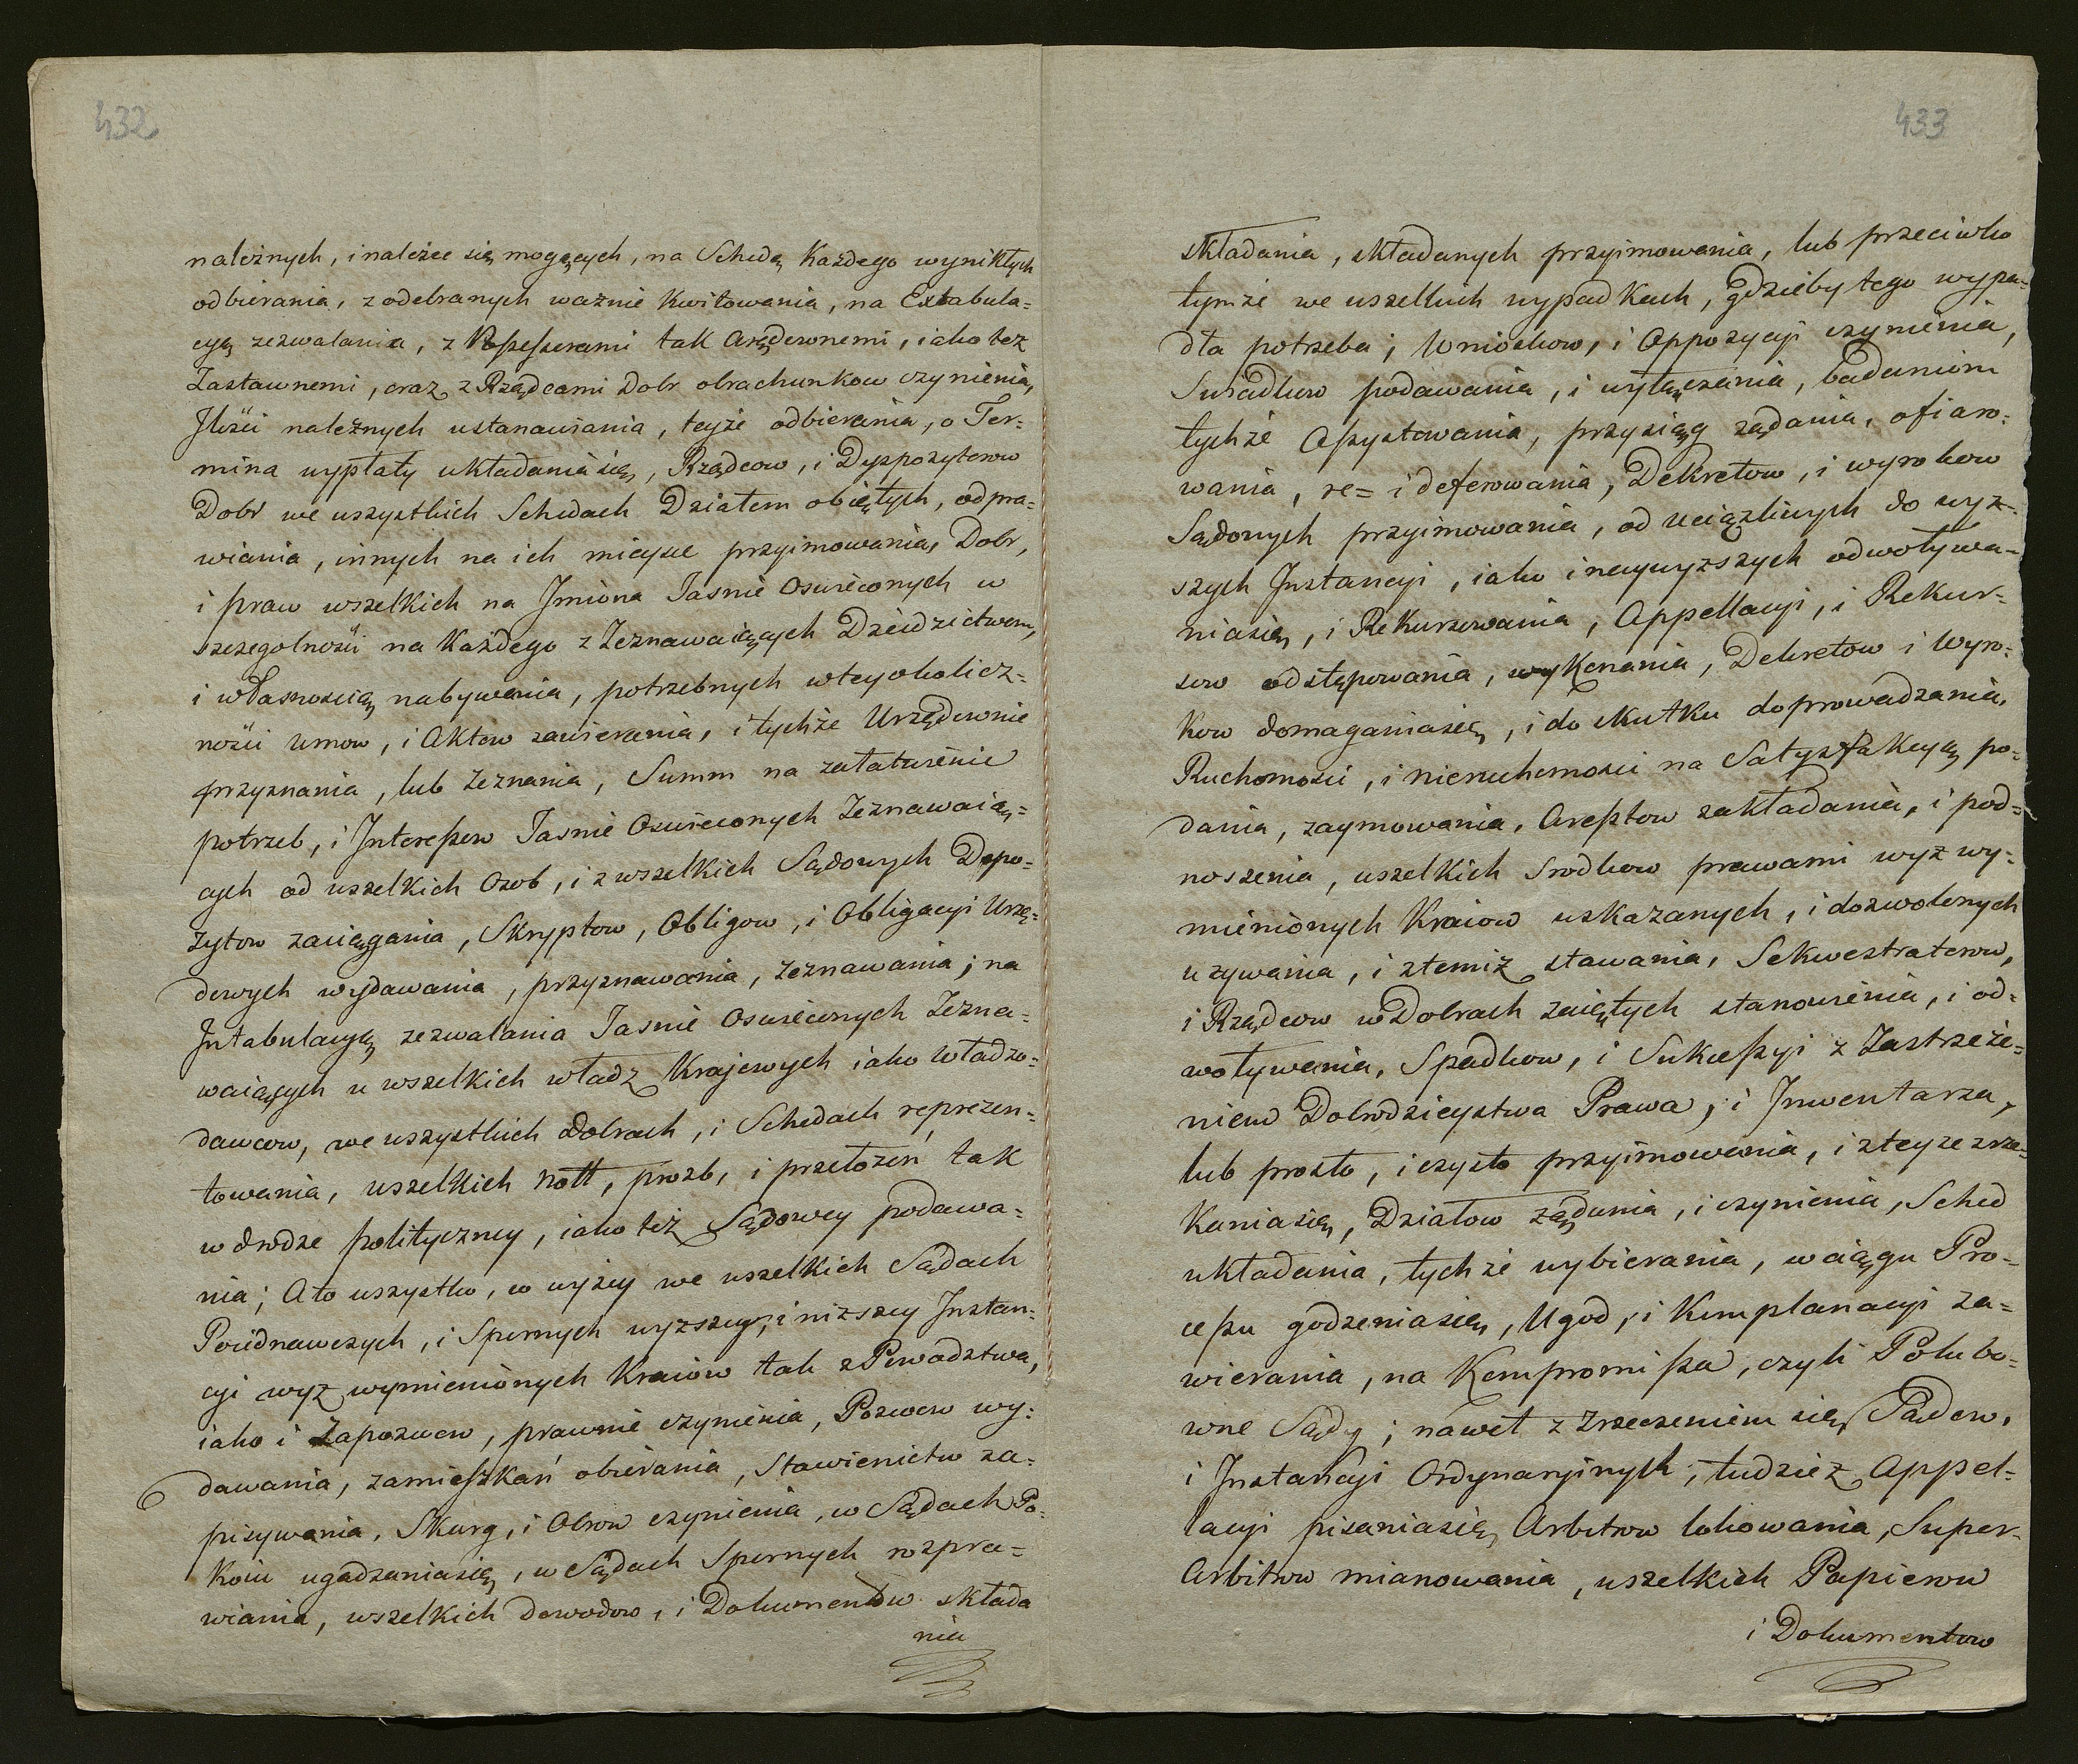 432
należnych, i należec się mogących, na Schedę Każdego wynikłych
odbierania, z odebranych ważnie Kwitowania, na Extabula=
cyą zezwalania, z Possessorami tak Arędownemi, iako tez
Zastawnemi, oraz z Rządcami Dobr obrachunkow czynienia,
Ilości należnych ustanawiania, teyże odbierania, o Ter=
mina wypłaty układania się, Rządcow, i Dyspozytorow
Dobr we wszystkich Schedach Działem obiętych, odpra=
wiania, innych na ich mieysce przyimowania, Dobr,
i praw wszelkich na Imiona Jasnie Oswieconych w
szczegolności na Każdego z Zeznawaiących Dziedzictwem,
i własnością nabywania, potrzebnych wtey okolicz=
ności Umow, i Aktow zawierania, i tychże Urzędownie
przyznania, lub Zeznania, Summ na załatwienie
potrzeb, i Interessow Jasnie Oswieconych Zeznawaią=
cych od wszelkich Osob, i z wszelkich Sądowych Depo=
zytow zaciągania, Skryptow, Obligow, i Obligacyi Urzę=
dowych wydawania, przyznawania, zeznawania; na
Intabulacyą zezwalania Jasnie Oswieconych Zezna=
waiących u wszelkich władz Krajowych iako Władzo=
dawcow, we wszystkich Dobrach, i Schedach reprezen=
towania, wszelkich nott, prozb, i przełożeń tak
w drodze polityczney, iako też Sądowey podawa=
nia; A to wszystko, co wyżey we wszelkich Sądach
Poiednawczych, i Spornych wyzszey, i nizszey Instan=
cyi wyz wymienionych Kraiow tak z Powodztwa,
iako i Zapozwow, prawnie czynienia, Pozwow wy=
dawania, zamieszkań obierania, Stawienictw za=
pisywania, Skarg, i Obron czynienia, w Sądach Po=
Koiu ugadzania się, w Sądach Spornych rozpra=
wiania, wszelkich dowodow, i Dokumentow składa
nia
433
składania, składanych przyimowania, lub przeciwko
tymże we wszelkich wypadkach, gdzieby tego wypa=
dła potrzeba, Wnioskow, i Oppozycyi czynienia,
Swiadkow podawania, i wyłączania, badaniom
tychże Assystowania, przysiąg żądania, ofiaro=
wania, re= i deferowania, Dekretow, i wyrokow
Sądowych przyimowania, od uciążliwych do wyz=
szych Instancyi, iako i naywyzszych odwoływa=
nia się, i Rekurowania, Appellacyi, i Rekur=
sow odstępowania, wykonania, Dekretow i Wyro=
kow domagania się, i do skutku doprowadzania,
Ruchomości, i nieruchomości na Satysfakcyą po=
dania, zaymowania, Aresztow zakładania, i pod=
noszenia, wszelkich srodkow prawami wyz wy=
mienionych Kraiow wskazanych, i dozwolonych
uzywania, i ztemiż stawania, Sekwestratorow,
i Rządcow w Dobrach zaiętych stanowienia, i od=
woływania, Spadkow, i Sukcessyi z Zastrzeże=
niem Dobrodzieystwa Prawa, i Inwentarza,
lub prosto, i czysto przyimowania, i zteyze zrze=
Kania się, Działow żądania, i czynienia, Sched
układania, tychże wybierania, w ciągu Pro=
cessu godzenia się, Ugod, i Komplanacyi za=
wierania, na Kompromissa, czyli Polubo=
wne Sądy; nawet z Zrzeczeniem się Sądow,
i Instancyi Ordynaryinych, tudzież Appel=
lacyi pisania się Arbitrow lokowania, Super=
Arbitrow mianowania, wszelkich Papierow
i Dokumentow